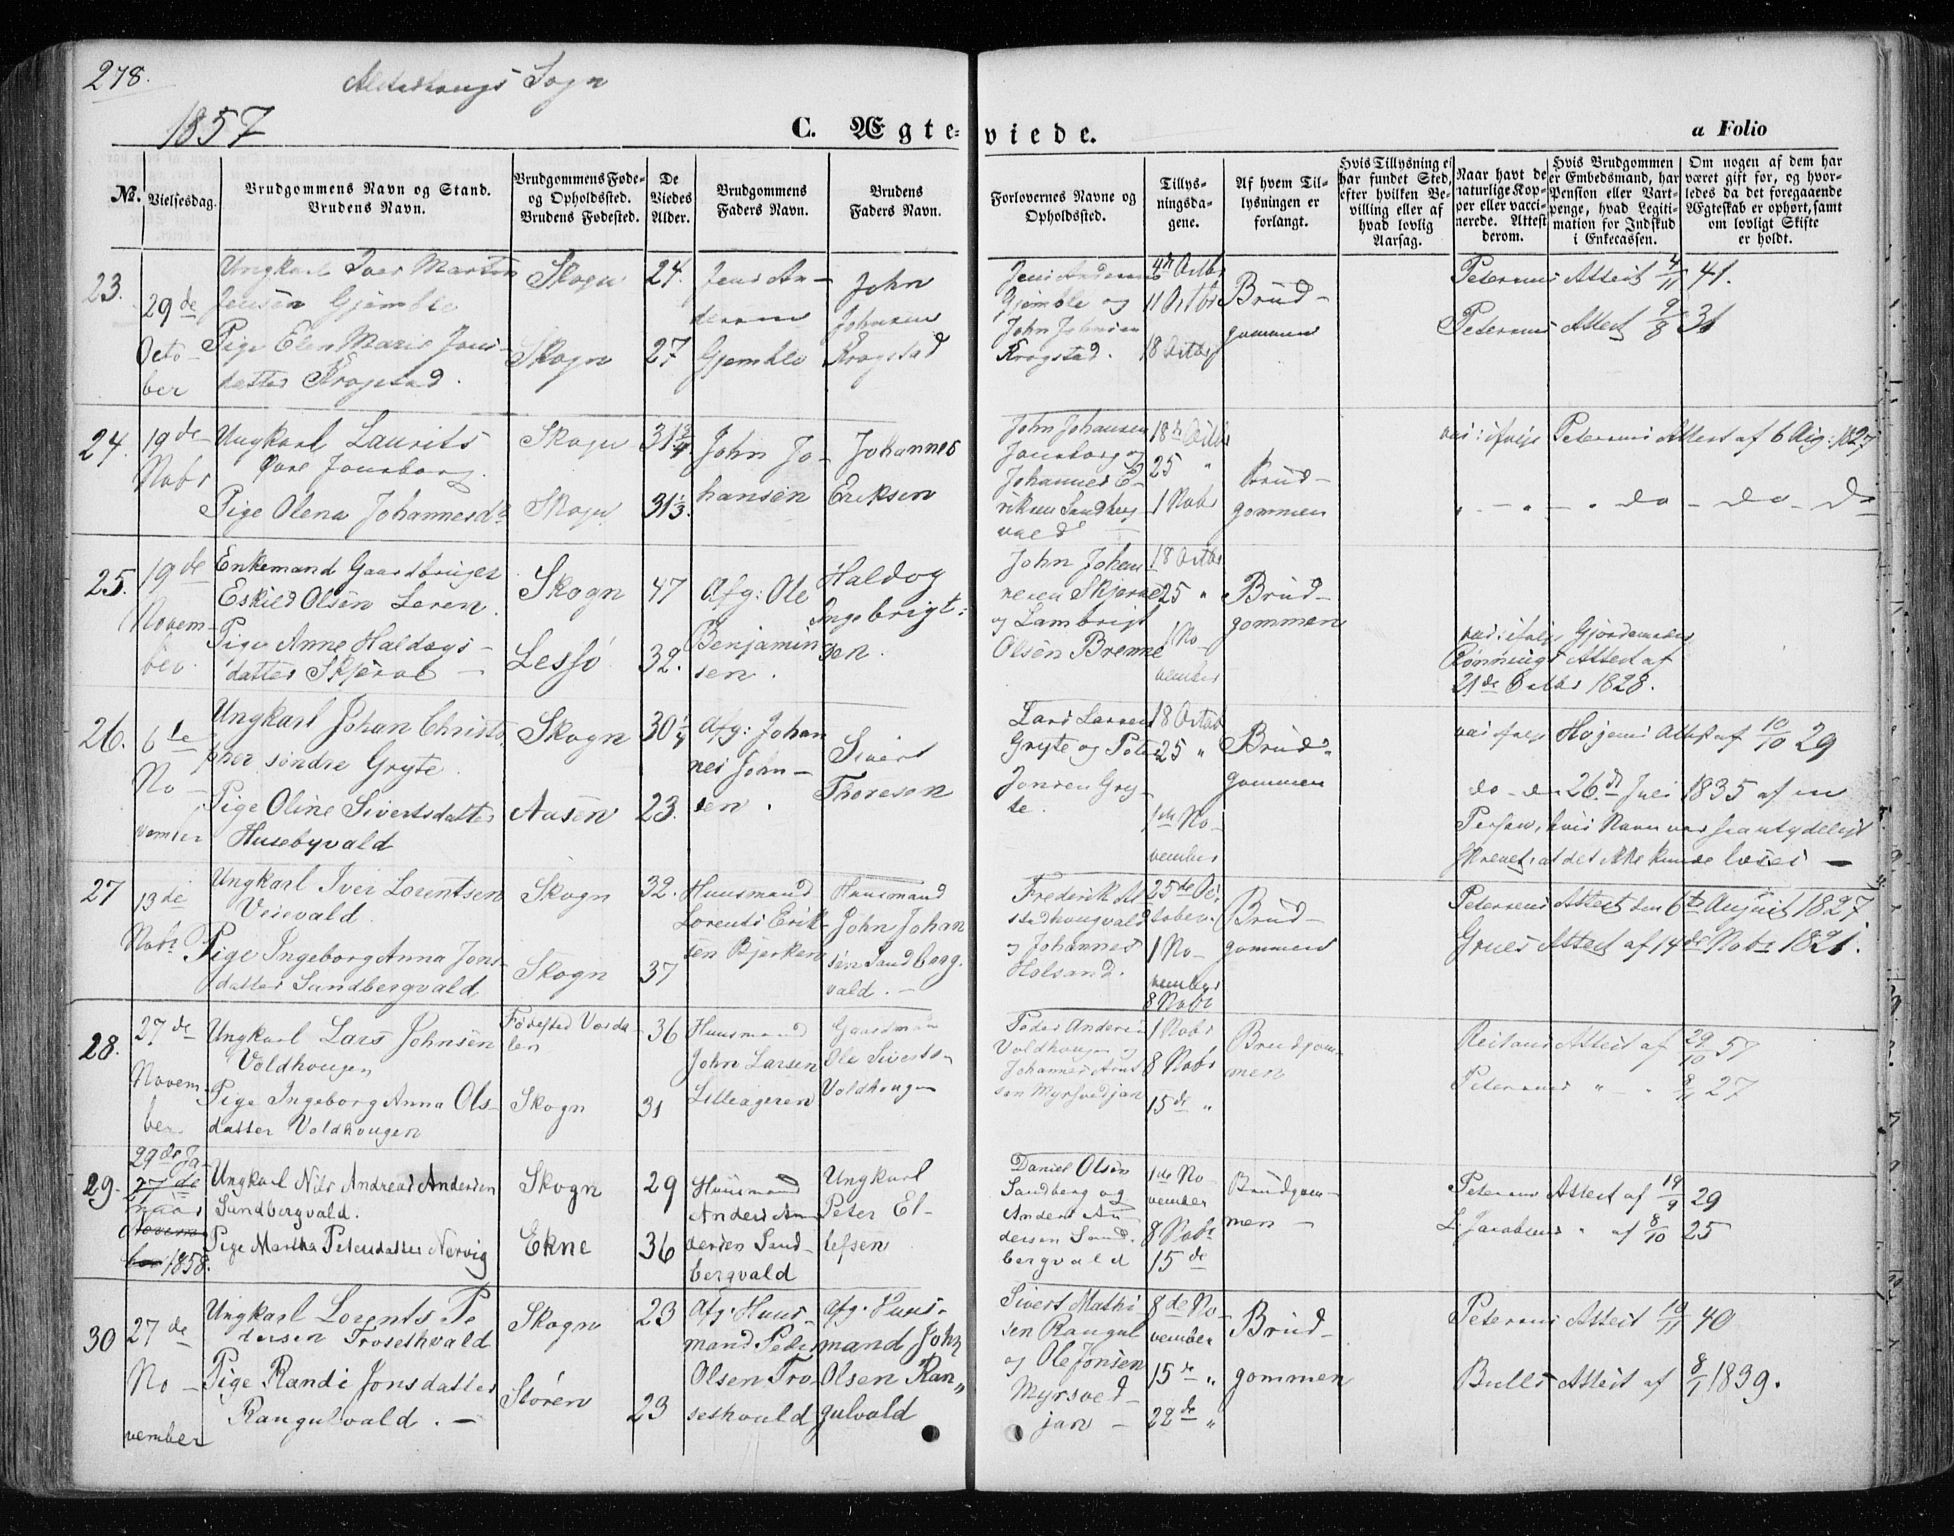 278.
Alstadhougs Sogn
1857
C. Ægteviede.
a Folio
No.
Vielsesdag.
Brudgommens Navn og Stand.
Brudens Navn.
Brudgommens Føde-
og Opholdssted.
Brudens Fødested.
De
Viedes
Alder.
Brudgommens
Faders Navn.
Brudens
Faders Navn.
Forlovernes Navne og
Opholdssted.
Tillys-
ningsda-
gene.
Af hvem Til-
lysningen er
forlangt.
Hvis Tillysning ei
har fundet Sted,
efter hvilken Be-
villing eller af
hvad lovlig
Aarsag.
Naar havt de
naturlige Kop-
per eller vacci-
nerede. Attest
derom.
Hvis Brudgommen
er Embedsmand, har
Pension eller Vart-
penge, hvad Legiti-
mation for Indskud
i Enkecassen.
Om nogen af dem har
været gift for, og hvor-
ledes da det foregaaende
Ægteskab er ophørt, samt
om lovligt Skifte
er holdt.
23.
29de
Octo
ber
Ungkarl Iver Martin
Jensen Gjemble
Pige Elen Marie Jons-
datter Krogstad.
Skogn
Skogn
24.
27
Jens An-
dersen
Gjemble
John
Johnsen
Krogstad
Jens Andersen
Gjemble og
John Johnsen
Krogstad.
4de Octbr
11 Octbr
18 Octbr
Brud-
gommen
Petersens Attest 4/11 41.
Petersens Attest 9/8 31
24.
19de
Nobr
Ungkarl Laurits
Øvre Jonsborg.
Pige Olena Johannesdr
Skogn
Skogn
31 3/4
31 1/3.
John Jo-
hansen
Johannes
Eriksen
John Johansen
Jonsborg og
Johannes E-
riksen Sandberg
vald
18de Octbr
25 "
1 Nobr
Brud-
gommen
vac: ifølge Petersens Attest af 6 Aug: 1827
" - " - " do - do - do
25.
19de
Novem-
ber
Enkemand Gaardbruger
Eskild Olsen Leren.
Pige Anne Haldogs-
datter Skjerve
Skogn
Lessø
47
32.
Afg: Ole
Benjamin
sen.
Haldog
Ingebrigt:
sen.
John Johan
nesen Skjerve
og Lambrigt
Olsen Brenne
18 Octbr
25 "
1 No-
vember
Brud-
gommen
vac: ifølge Gjordemoder
Rønnings Attest af
21de Octbr 1828.
26.
6te
No-
vember
Ungkarl Johan Christo
pher søndre Gryte.
Pige Oline Sivertsdatter
Husebyvald
Skogn
Aasen
30 1/4
23.
Afg: Johan
nes John-
sen.
Sivert
Thoresen
Lars Larsen
Gryte og Peter
Jonsen Gry-
te.
18 Octob
25 "
1ste No-
vember
Brud-
gommen
vac ifølge Høyems Attest af 10/10 29
do - do 26de Juli 1835 af en
Person, hvis Navn var saa utydeligt
skrevet, at det ikke kunde læses -
27
13de
Nobr
Ungkarl Iver Lorentsen
Veievald.
Pige Ingeborg Anna Jons
datter Sundbergvald
Skogn
Skogn
32.
37
Huusmand
Lorents Erik-
sen Bjerken
Huusmand
John Johan
sen Sandberg-
vald. -
Frederik Al
stadhougvald
og Johannes
Holsand.
25de Oc
tober.
1 No-
vember
8 Nobr
Brud-
gommen
Petersens Attest den 6te August 1827.
Grues Attest af 14de Nobr 1821.
28.
27de
Novem-
ber
Ungkarl Lars Johnsen
Voldhougen
Pige Ingeborg Anna Ols-
datter Voldhougen
Fødested Værda
len
Skogn
36
31
Huusmand
John Larsen
Lilleageren
Gaardman
Ole Siverts-
Voldhougen
Peder Andersen
Voldhougen og
Johannes Arnt
sen Myrsvedjan
1 Nobr
8 Nobr
15de "
Brudgom-
men
Reitans Attest af 29/10 57
Petersens " " 8/11 27
29.
29de Ja
27de
nuar
Novem
ber 1858.
Ungkarl Nils Andreas Andersen
Sundbergvald.
Pige Martha Petersdatter Nervig
Skogn
Ekne
29
36
Huusmand
Anders An
dersen Sand-
bergvald
Ungkarl
Peter El-
lefsen
Daniel Olsen
Sandberg og
Anders An-
dersen Sand-
bergvald
1ste No-
vember
8 Nobr
15de
Brudgom-
men -
Petersens Attest af 19/9 29
L. Jacobsens " af 8/10 25
30
27de
No-
vember
Ungkarl Lorents Pe
dersen Trosethvald
Pige Randi Jonsdatter
Rangulvald. -
Skogn
Støren
23
23
Afg. Huus-
mand Peder
Olsen Tro-
sethvald
Afg. Huus-
mand John
Olsen Ran"
gulvald
Sivert Mathi
sen Rangul
og Ole Jonsen
Myrsved-
jan -
8de No-
vember
15de "
22de "
Brud-
gommen
Petersens Attest 10/11 40
Bulls Attest af 8/1 1839.